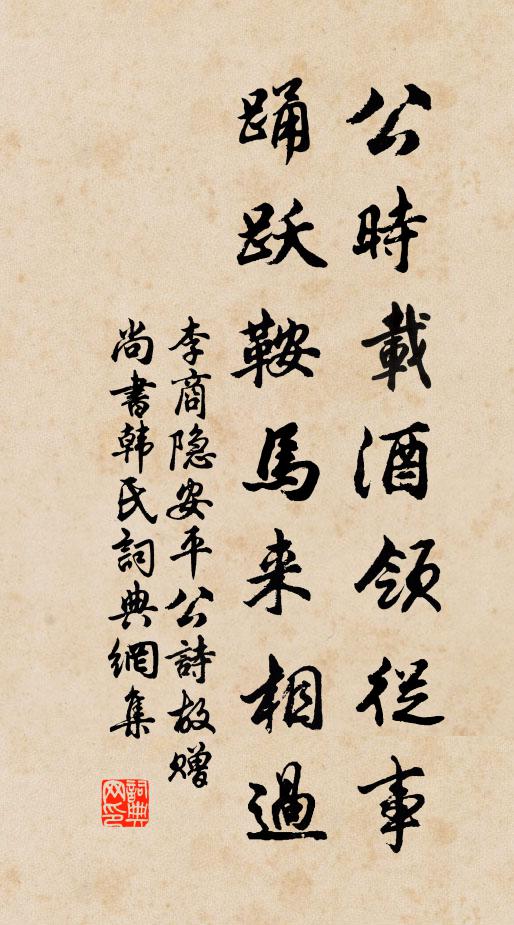 公時載酒領從事
踊跃鞍馬来相過
李商隐安平公詩故赠
尚書韩氏詞典網集
詞典网印